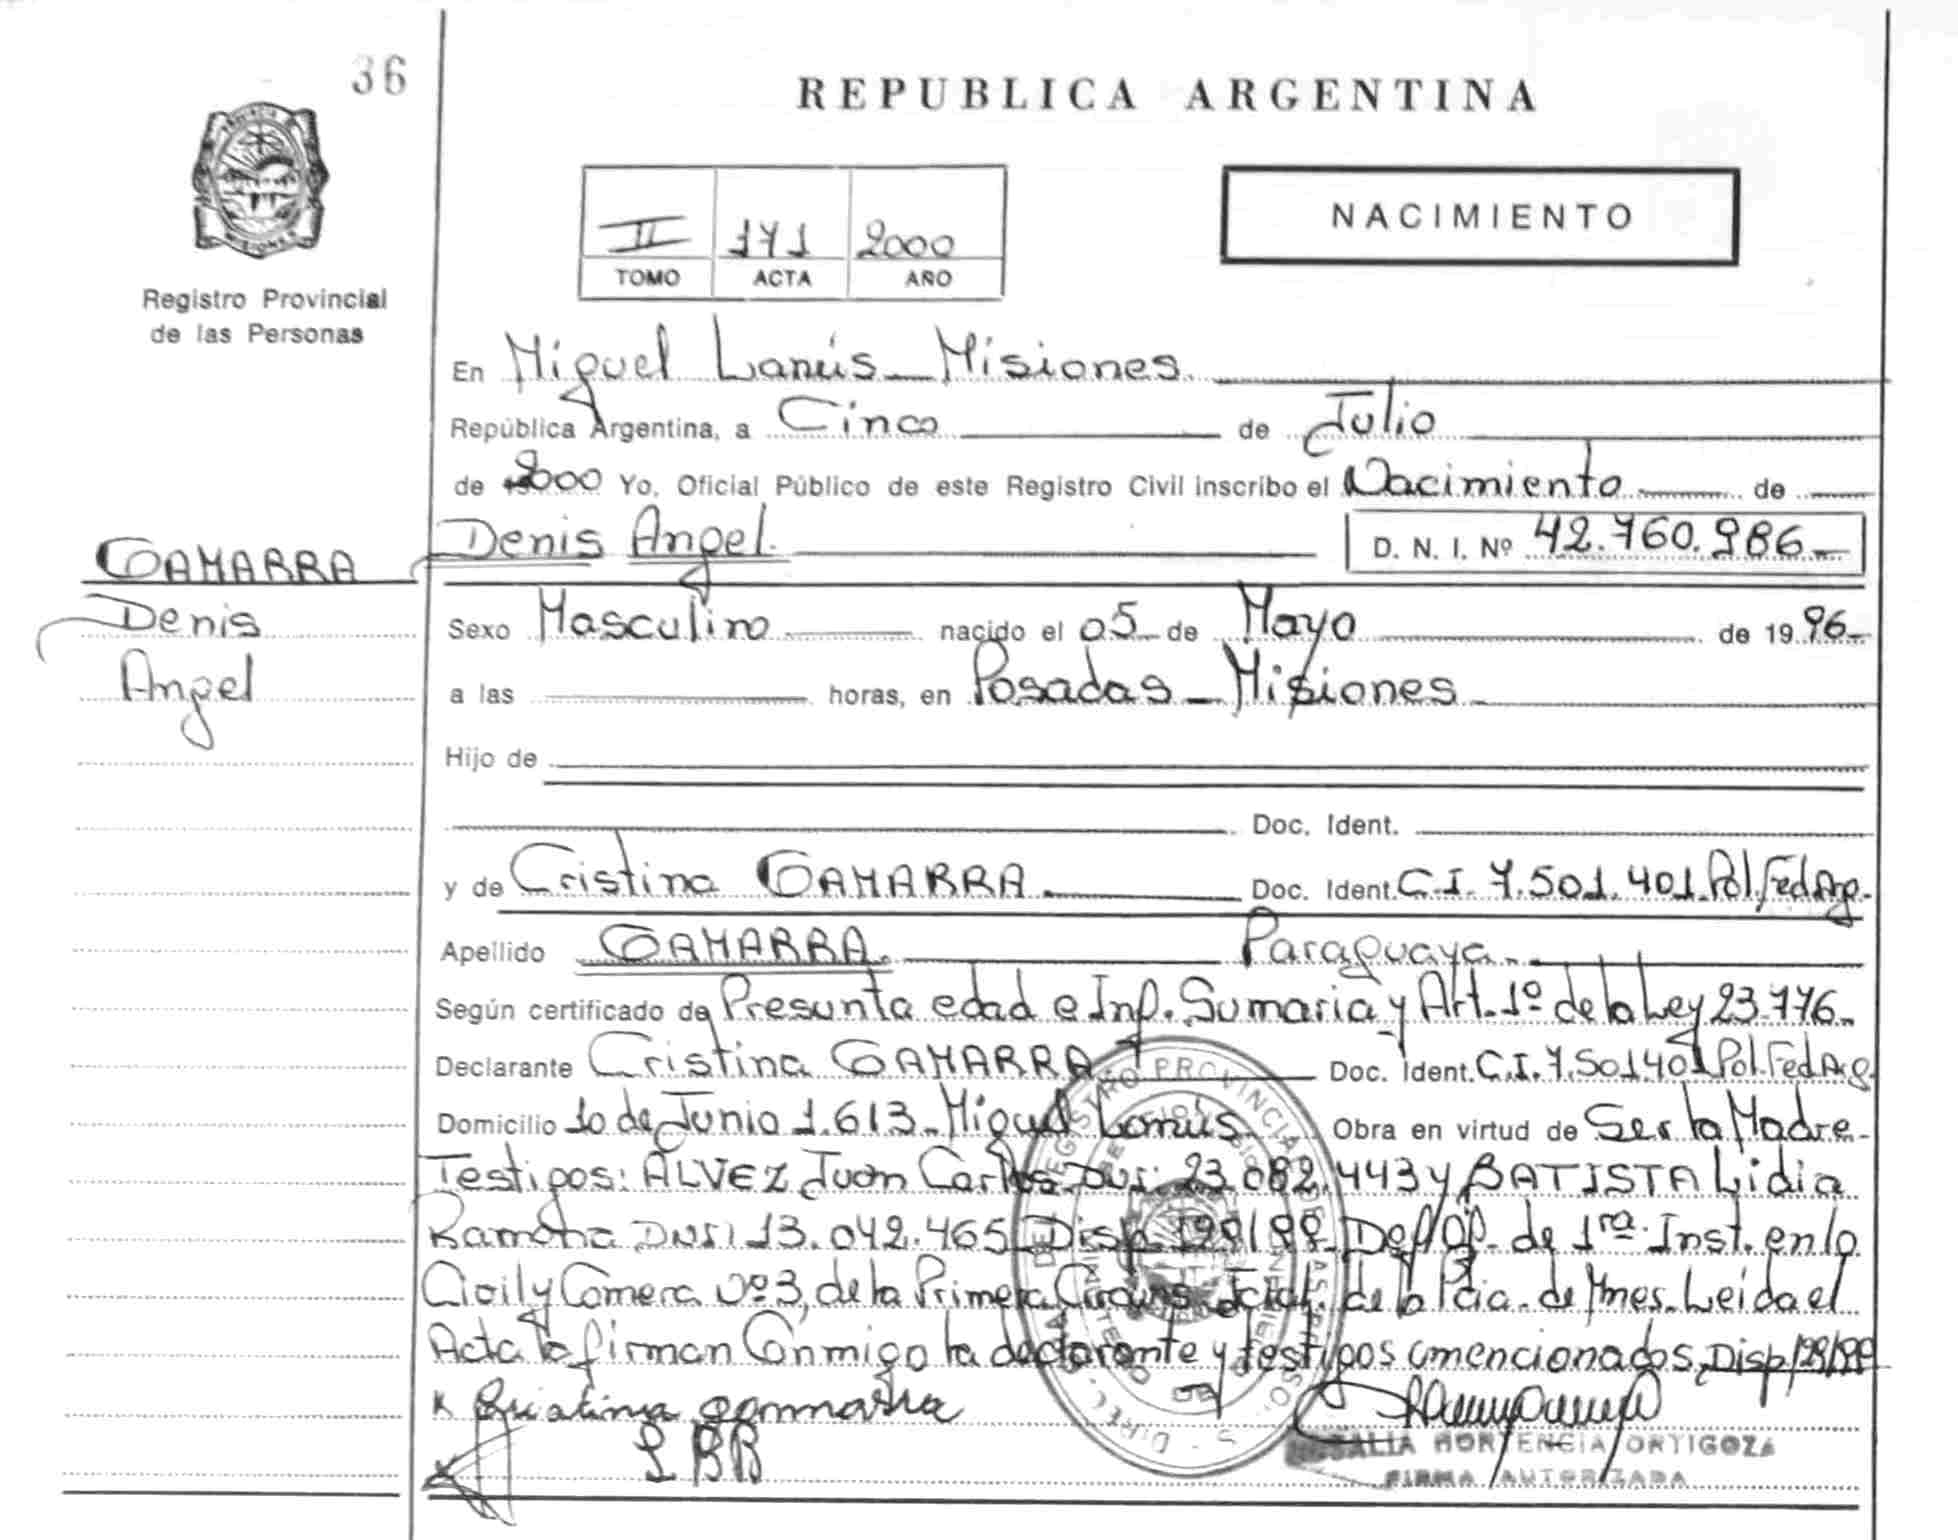 36
REPUBLICA ARGENTINA
NACIMIENTO
II 171 2000
TOMO ACTA AÑO
Registro Provincial
de las Personas
En Miguel Lanús - Misiones
República Argentina, a Cinco de Julio
de 2000 Yo, Oficial Público de este Registro Civil inscribo el Nacimiento de
Denis Angel. D. N. I. Nº 42.760.986-
GAMARRA
Denis
Angel
Sexo Masculino nacido el 05 de Mayo de 19 96-
a las horas, en Posadas - Misiones
Hijo de
Doc. Ident.
y de Cristina GAMARRA Doc. Ident. C.I. 7.501.401 Pol. Fed Arg.
Apellido GAMARRA. Paraguaya.
Según certificado de Presunta edad e Inf. Sumaria y Art. 1º de la Ley 23.776-
Declarante Cristina GAMARRA Doc. Ident. C.I. 7.501401 Pol. Fed Arg.
Domicilio 10 de Junio 1.613 - Miguel Lanús. Obra en virtud de Ser la Madre-
Testigos: ALVEZ Juan Carlos DNI: 23.082.443 y BATISTA Lidia
Ramona DNI: 13.042.465 Disp. Def. Of. de 1ra. Inst. en lo
Civil y Comerc. Nº 3, de la Primera de la Pcia. de Mnes. Leida el
Acta la firman Conmigo la declarante y testigos mencionados. Disp.
Cristina gamarra
L BR
ORTENCIA ORTIGOZA
FIRMA AUTORIZADA